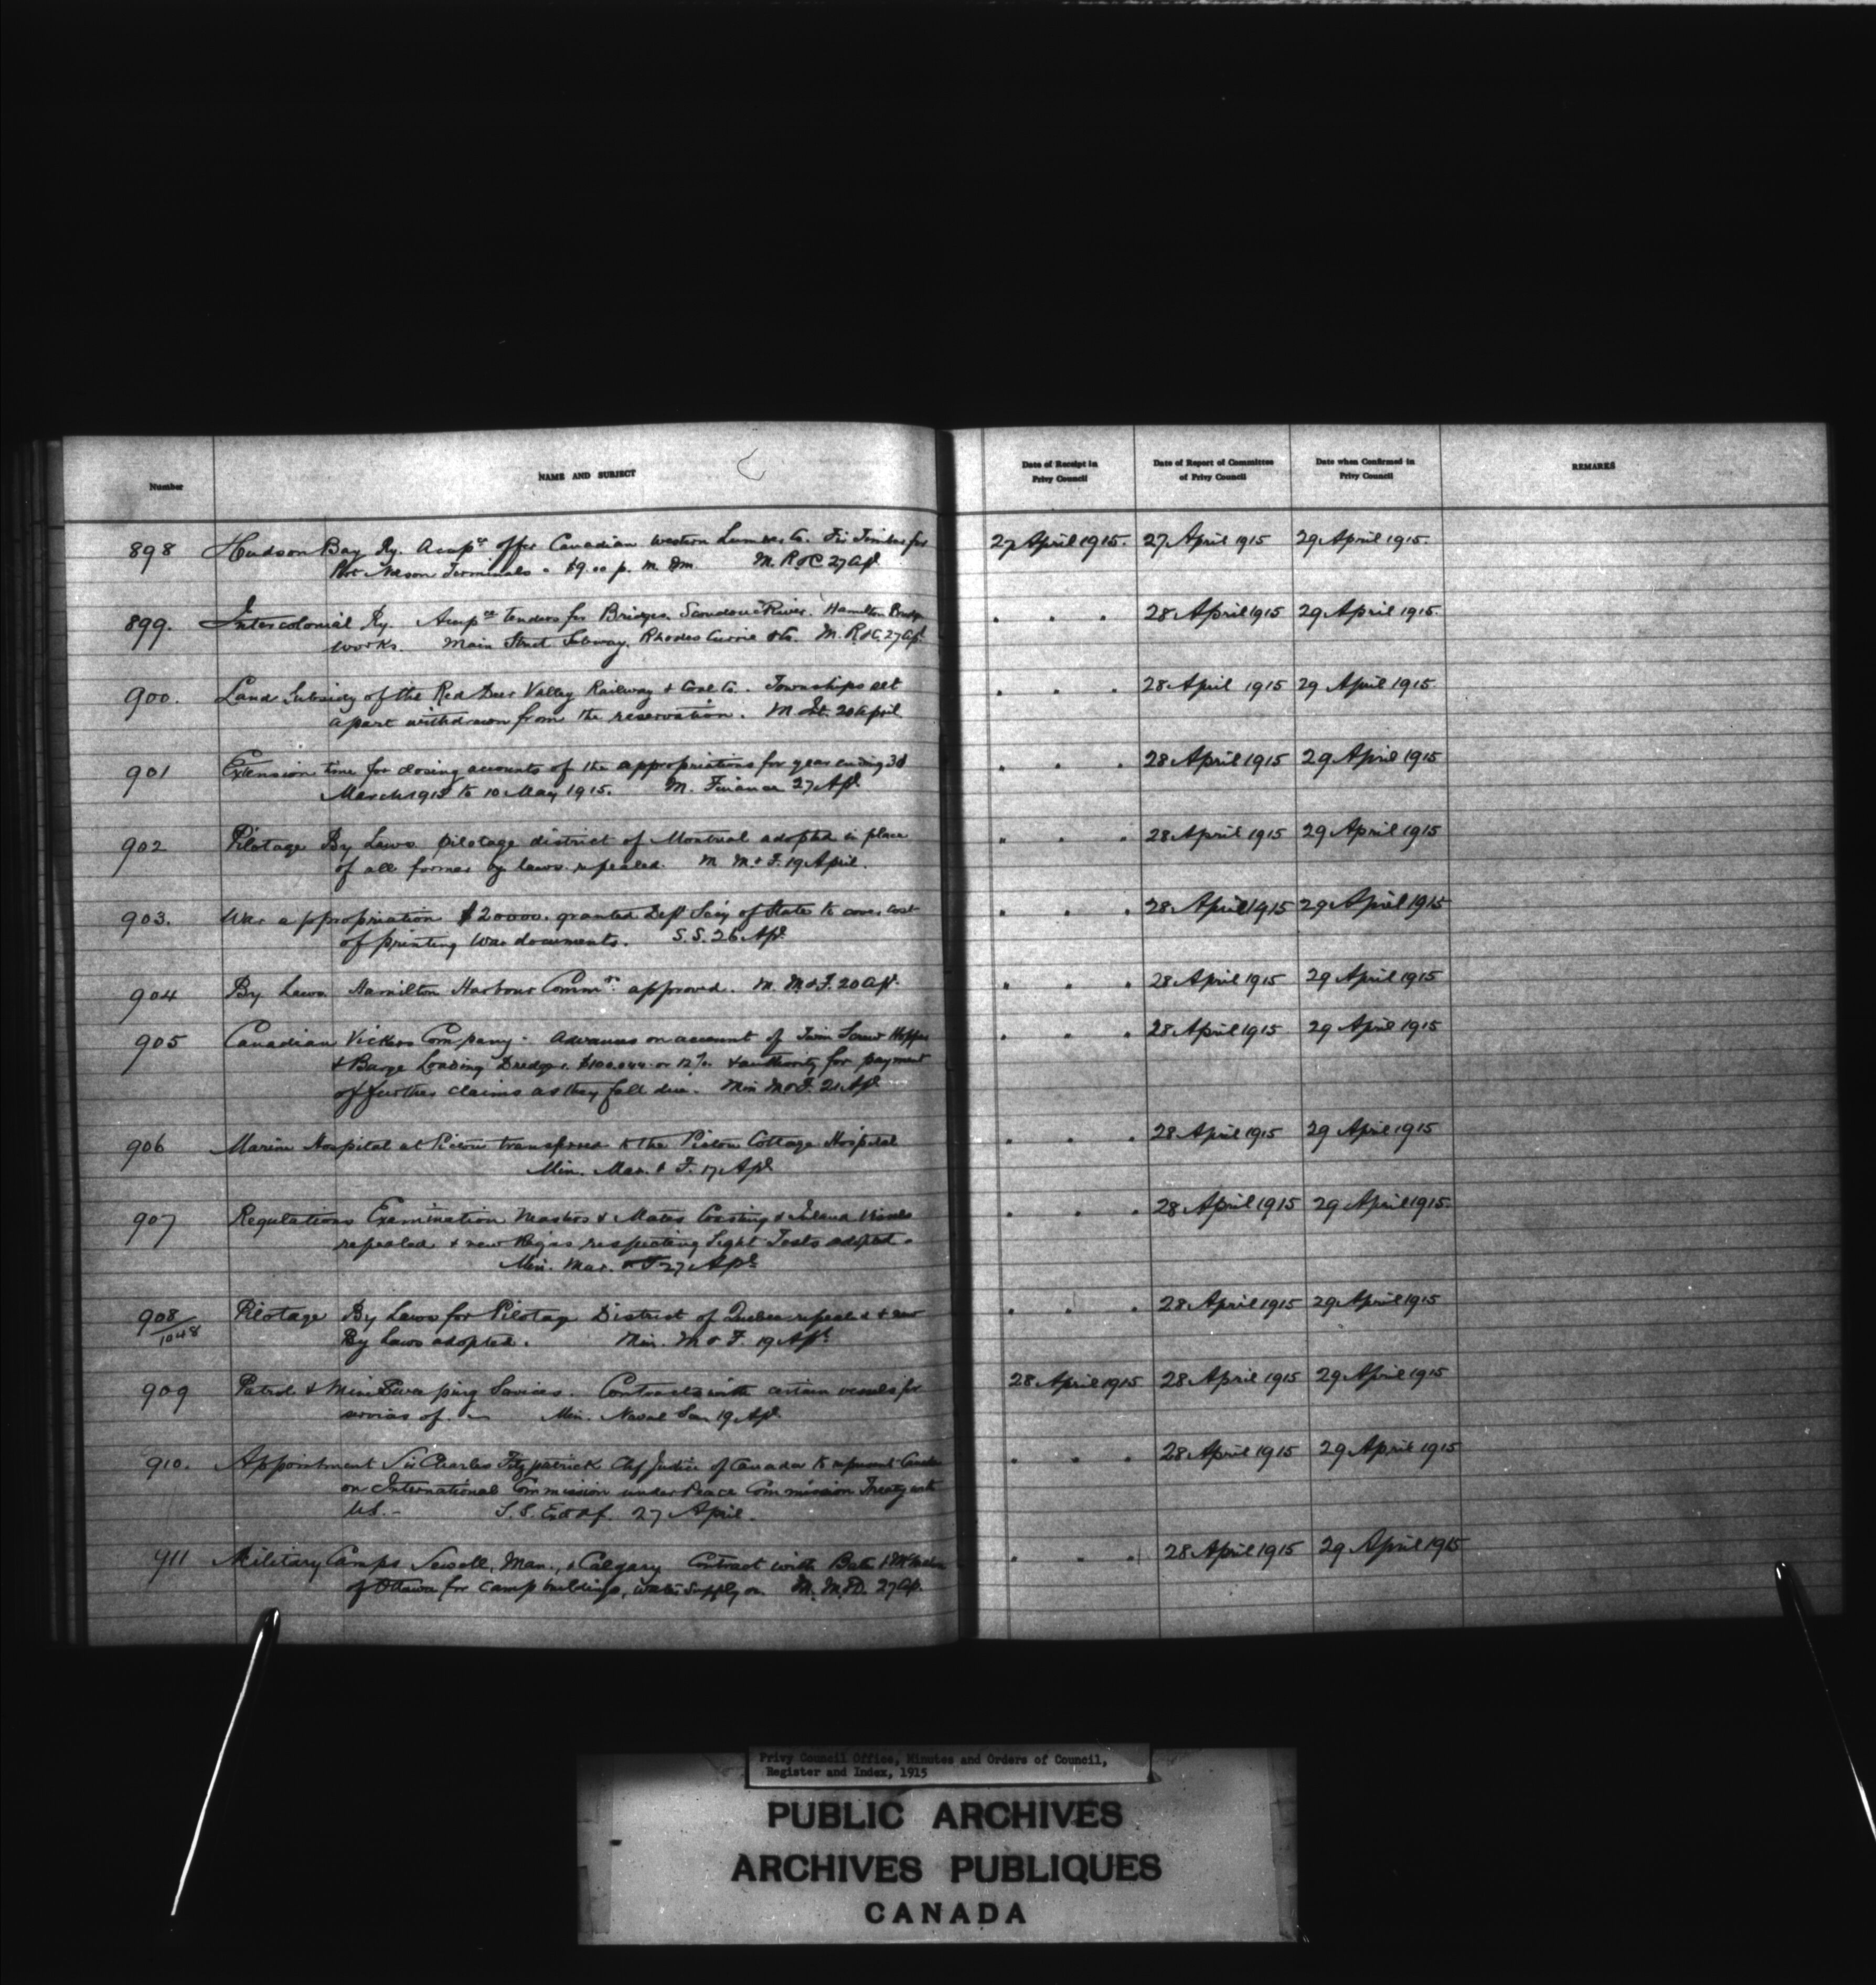 Number
NAME AND SUBJECT
Date of Receipt in
Privy Council
Date of Report of Committee
of Privy Council
Date when Confirmed in
Privy Council
REMARKS
898 Hudson Bay Ry. Accepce offer Canadian Western Lumber Co. Fir Timber for 27 April 1915. 27 April 1915 29 April 1915.
Port Nelson Terminals - $9.00 p. M. M. R. & C. 27 Apl
899. Intercolonial Ry. Accepce tenders for Bridges. Scoudouc River. Hamilton Bridge " " " 28 April 1915 29 April 1915.
works. Main Street Subway. Rhodes Currie & Co. M. R. & C. 27 Apl
900. Land Subsidy of the Red Deer Valley Railway & Coal Co. Townships set " " " 28 April 1915 29 April 1915.
apart withdrawn from the reservation. M. Int. 20 April
901 Extension time for closing accounts of the appropriations for year ending 31 " " " 28 April 1915 29 April 1915
March 1915 to 10 May 1915. M. Finance 27 Apl
902 Pilotage By Laws Pilotage district of Montreal adopted in place " " " 28 April 1915 29 April 1915
of all former by laws repealed. M. M. & F. 19 April.
903. War appropriation $20000. granted Dept Secy of State to cover cost " " " 28 April 1915 29 April 1915
of printing War documents. S.S. 26 Apl
904 By Laws Hamilton Harbour Commrs. approved. M. M. & F. 20 Apl. " " " 28 April 1915 29 April 1915
905 Canadian Vickers Company. Advances on account of Twin Screw Hopper " " " 28 April 1915 29 April 1915
& Barge Loading Dredge. or 12%. & authority for payment
of further claims as they fall due. Min M & F. 21 Apl
906 Marine Hospital at Pictou transferred to the Pictou Cottage Hospital " " " 28 April 1915 29 April 1915
Min. Mar. & F. 17 Apl
907 Regulations Examination Masters & Mates Coasting & Inland Vessels " " " 28 April 1915 29 April 1915.
repealed & new Regns respecting Sight Tests adopted.
Min. Mar. & F 27 Apl
908/1048 Pilotage By Laws for Pilotage District of Quebec repealed & new " " " 28 April 1915 29 April 1915
By Laws adopted. Min. M & F. 19 Apl
909 Patrol & Mine Sweeping Services. Contracts with certain vessels for 28 April 1915 28 April 1915 29 April 1915
services of. Min. Naval Ser. 19 Apl
910. Appointment Sir Charles Fitzpatrick Chf Justice of Canada to represent Canada " " " 28 April 1915 29 April 1915
on International Commission under Peace Commission Treaty with
U.S. - S.S. Ext Af. 27 April.
911 Military Camps Sewell, Man., & Calgary Contract with Bate & " " " 28 April 1915 29 April 1915
of Ottawa for camp buildings, water supply &c. M. M. & D. 27 Ap.
Privy Council Office, Minutes and Orders of Council,
Register and Index, 1915
PUBLIC ARCHIVES
ARCHIVES PUBLIQUES
CANADA